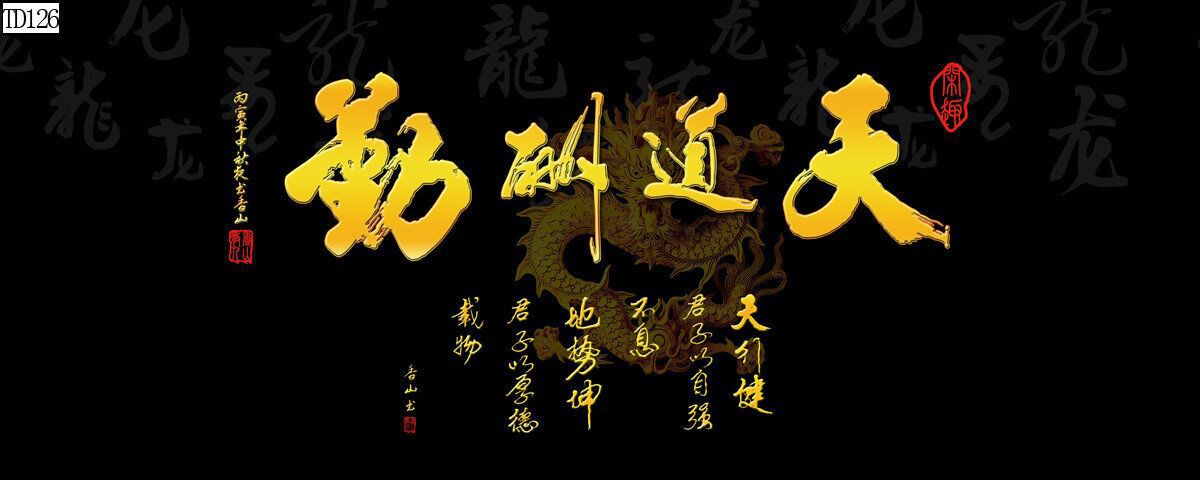 TD126
天道酬勤
丙寅年中秋夜书香山
天行健
君子以自强
不息
地势坤
君子以厚德
载物
香山书